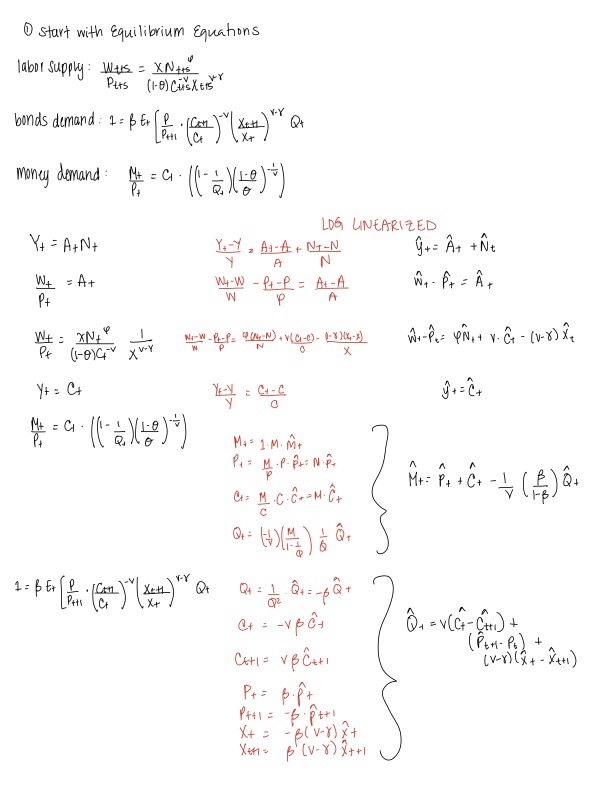 ① start with Equilibrium Equations
labor supply: W_{t+s}/P_{t+s} = χN_{t+s}^φ / ((1-θ)C_{t+s}^{-ν} X_{t+s}^{ν-γ})
bonds demand: 1 = β E_t [P/P_{t+1} · (C_{t+1}/C_t)^{-ν} (X_{t+1}/X_t)^{ν-γ} Q_t
money demand: M_t/P_t = C_t · ((1 - 1/Q_t)(1-θ/θ)^{-1/ν})
LOG LINEARIZED
Y_t = A_t N_t (Y_t-Y)/Y = (A_t-A)/A + (N_t-N)/N ŷ_t = Â_t + N̂_t
W_t/P_t = A_t (W_t-W)/W - (P_t-P)/P = (A_t-A)/A ŵ_t - P̂_t = Â_t
W_t/P_t = χN_t^φ/((1-θ)C_t^{-ν}) 1/X^{ν-γ} (W_t-W)/W - (P_t-P)/P = φ(N_t-N)/N + ν(C_t-C)/C - (ν-γ)(X_t-X)/X ŵ_t - P̂_t = φN̂_t + ν·Ĉ_t - (ν-γ)X̂_t
Y_t = C_t (Y_t-Y)/Y = (C_t-C)/C ŷ_t = Ĉ_t
M_t/P_t = C_t · ((1 - 1/Q_t)(1-θ/θ)^{-1/ν})
M_t = 1·M·M̂_t
P_t = M/P · P·P̂_t = N·P̂_t
C_t = M/C · C·Ĉ_t = M·Ĉ_t
Q_t = (-1/ν)(M/(1-1/Q)) 1/Q Q̂_t
M̂_t = P̂_t + Ĉ_t - 1/ν (β/(1-β)) Q̂_t
1 = β E_t [P/P_{t+1} · (C_{t+1}/C_t)^{-ν} (X_{t+1}/X_t)^{ν-γ} Q_t
Q_t = 1/Q² · Q̂_t = -βQ̂_t
C_t = -νβĈ_t
C_{t+1} = νβĈ_{t+1}
P_t = β·p̂_t
P_{t+1} = -β·p̂_{t+1}
X_t = -β(ν-γ)x̂_t
X_{t+1} = β(ν-γ)X̂_{t+1}
Q̂_t = ν(Ĉ_t - Ĉ_{t+1}) +
(P̂_{t+1} - P_t) +
(ν-γ)(X̂_t - X̂_{t+1})